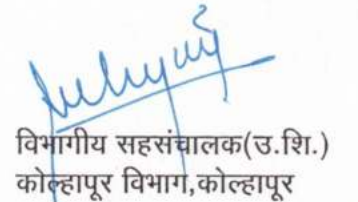 विभागीय सहसंचालक(उ.शि.)
कोल्हापूर विभाग,कोल्हापूर